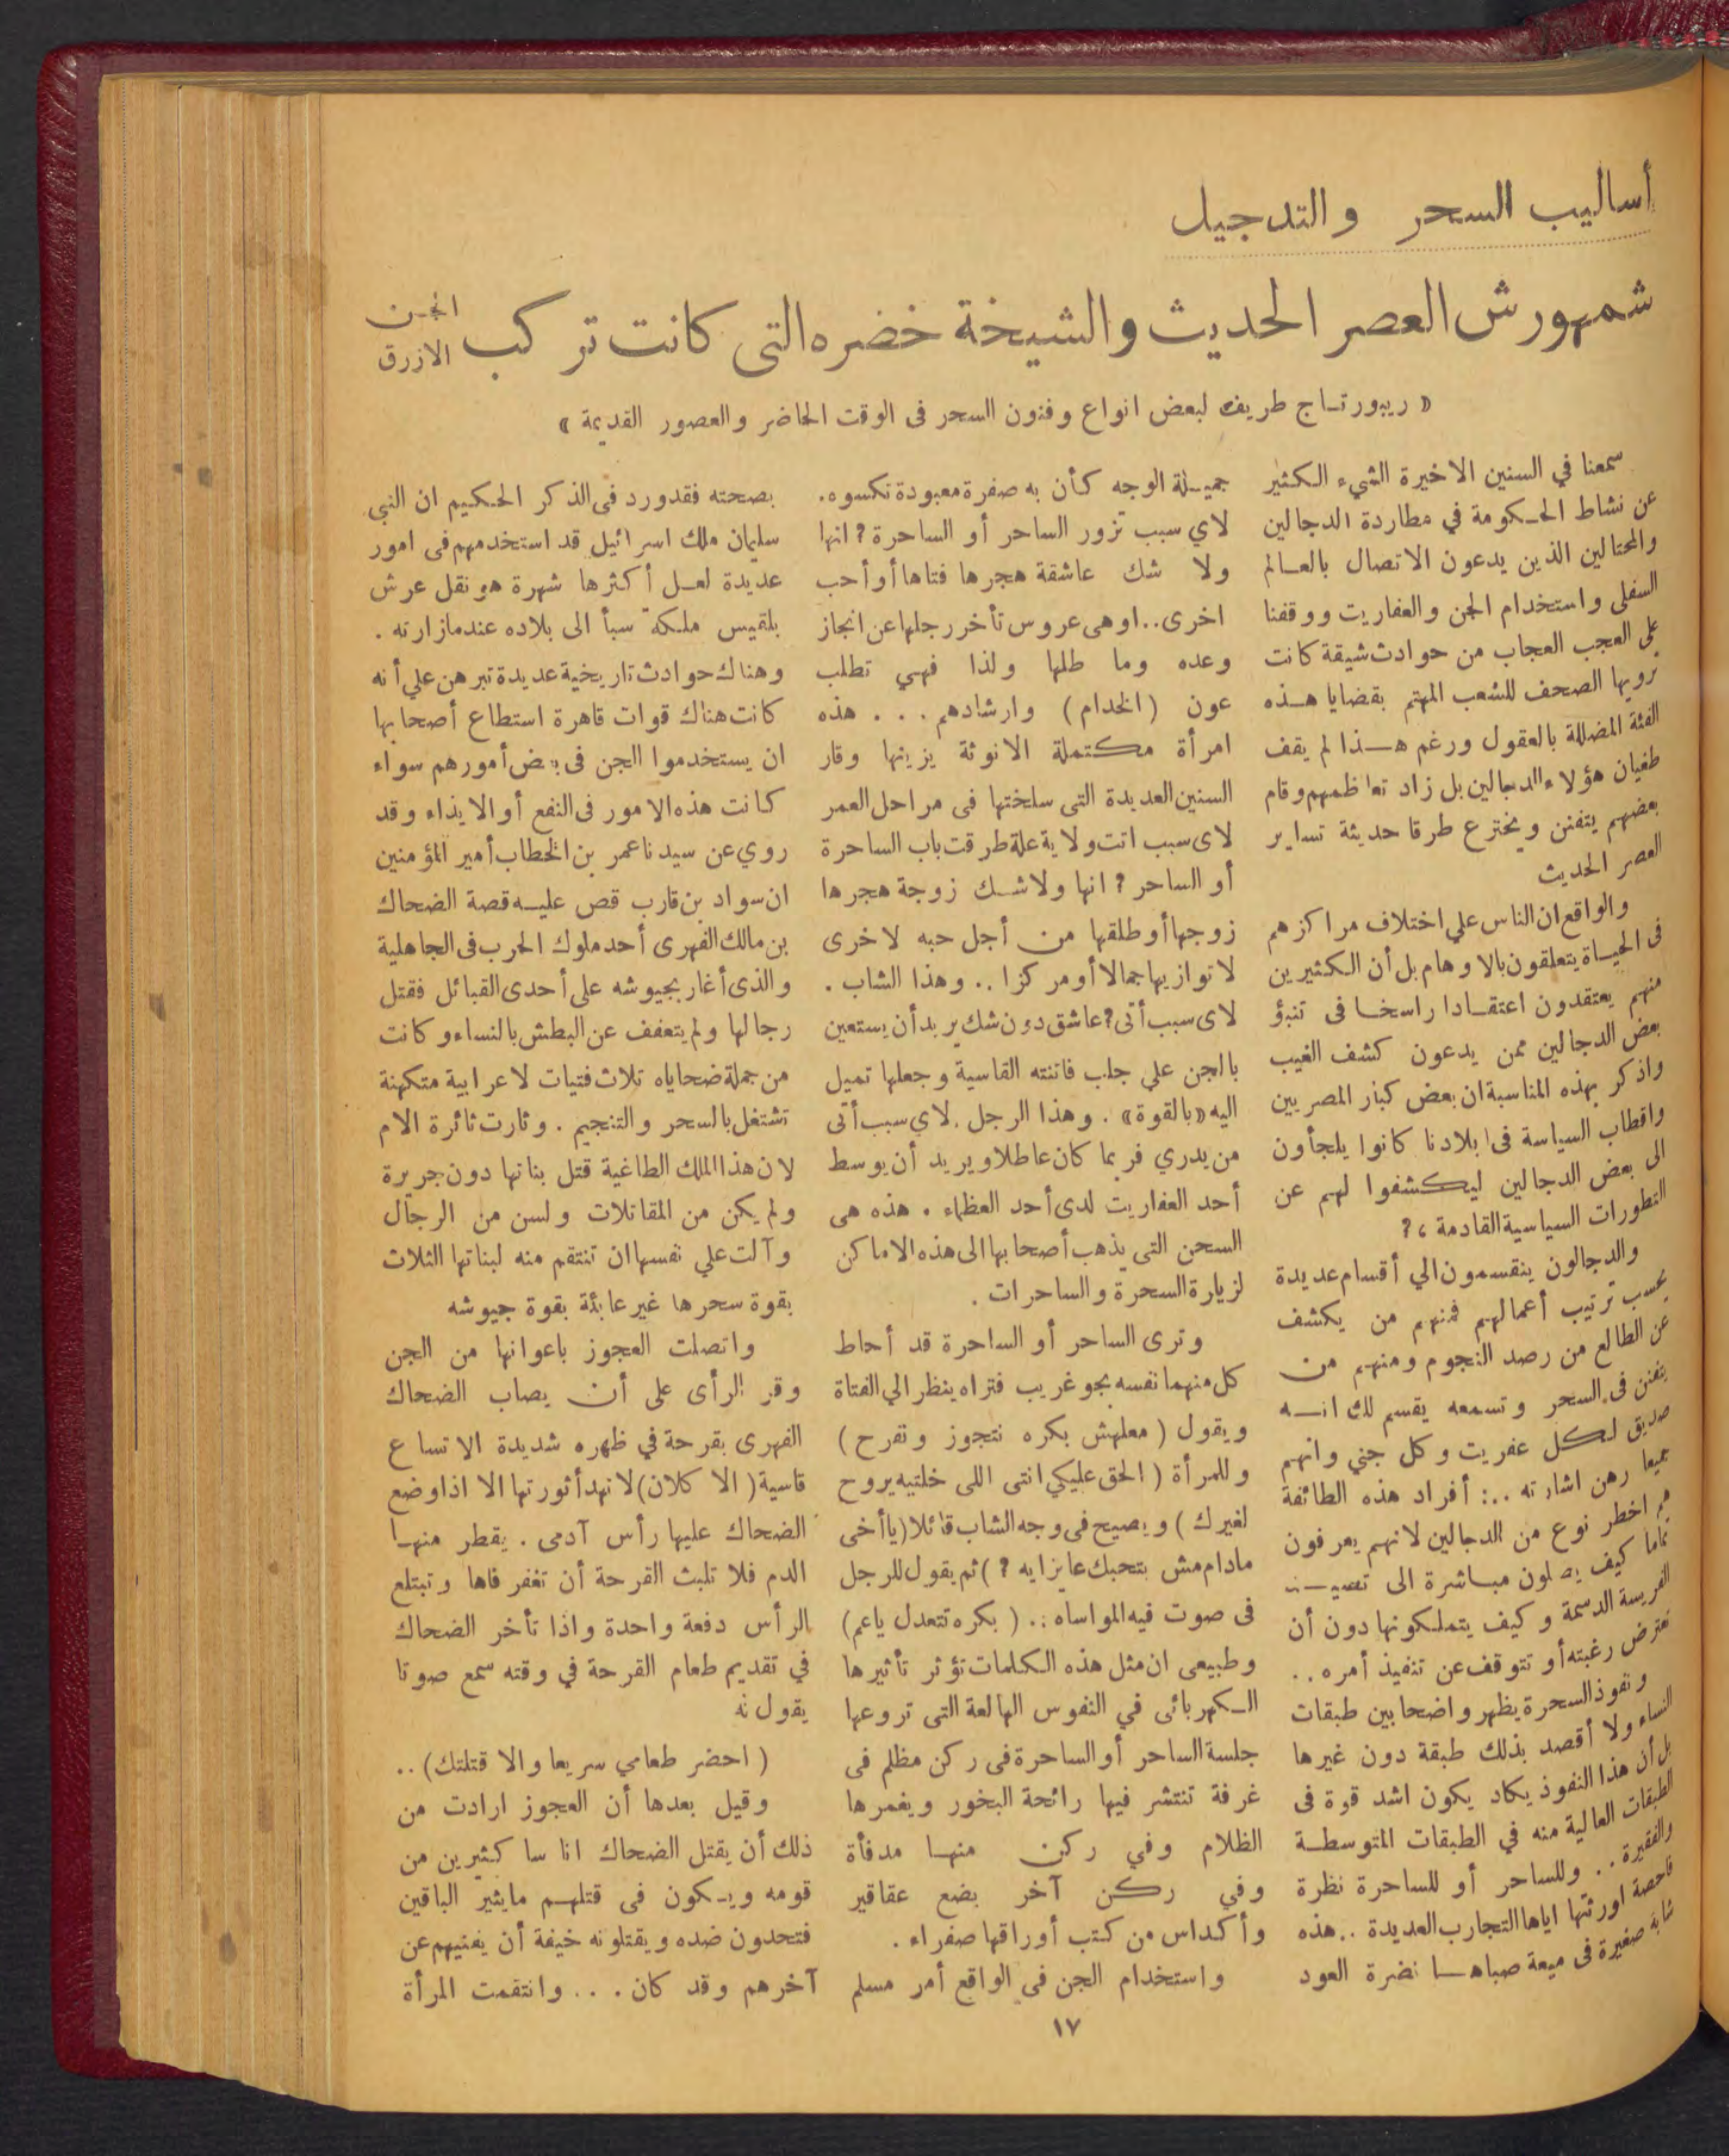 أساليب السحر والتدجيل
شمهورش العصر الحديث والشيخة خضره التى كانت تركب الجن الازرق
« ريبورتاج طريف لبعض انواع وفنون السحر فى الوقت الحاضر والعصور القديمة »
سمعنا في السنين الاخيرة الشيء الكثير
عن نشاط الحكومة في مطاردة الدجالين
والمحتالين الذين يدعون الاتصال بالعالم
السفلى واستخدام الجن والعفاريت ووقفنا
على العجب العجاب من حوادث شيقة كانت
ترويها الصحف للشعب المهتم بقضايا هذه
الفئة المضللة بالعقول ورغم هذا لم يقف
طغيان هؤلاء الدجالين بل زاد تعاظمهم وقام
بعضهم يتفنن ويخترع طرقا حديثة تساير
العصر الحديث
والواقع ان الناس علي اختلاف مراكزهم
فى الحياة يتعلقون بالاوهام بل أن الكثيرين
منهم يعتقدون اعتقادا راسخا فى تنبؤ
بعض الدجالين ممن يدعون كشف الغيب
واذكر بهذه المناسبة ان بعض كبار المصريين
واقطاب السياسة فى بلادنا كانوا يلجأون
الى بعض الدجالين ليكشفوا لهم عن
التطورات السياسية القادمة ،?
والدجالون ينقسمون الي أقسام عديدة
بحسب ترتيب أعمالهم فمنهم من يكشف
عن الطالع من رصد النجوم ومنهم من
يتفنن فى السحر وتسمعه يقسم لك انه
صديق لكل عفريت وكل جني وانهم
جميعا رهن اشارته ..: أفراد هذه الطائفة
هم اخطر نوع من الدجالين لانهم يعرفون
تماما كيف يصلون مباشرة الى
الفريسة الدسمة وكيف يتملكونها دون أن
تعترض رغبته أو تتوقف عن تنفيذ أمره ..
ونفوذ السحرة يظهر واضحا بين طبقات
النساء ولا أقصد بذلك طبقة دون غيرها
بل أن هذا النفوذ يكاد يكون اشد قوة فى
الطبقات العالية منه في الطبقات المتوسطة
والفقيرة .. وللساحر أو للساحرة نظرة
فاحصة اورثتها اياها التجارب العديدة .. هذه
شابة صغيرة فى ميعة صباها نضرة العود
جميلة الوجه كأن به صفرة معبودة تكسوه.
لاي سبب تزور الساحر أو الساحرة ? انها
ولا شك عاشقة هجرها فتاها أو أحب
اخرى .. او هى عروس تأخر رجلها عن انجاز
وعده وما طلها ولذا فهي تطلب
عون (الخدام) وارشادهم ... هذه
امرأة مكتملة الانوثة يزينها وقار
السنين العديدة التى سلختها فى مراحل العمر
لاى سبب اتت ولاية علة طرقت باب الساحرة
أو الساحر ? انها ولا شك زوجة هجرها
زوجها أو طلقها من أجل حبه لاخرى
لا توازيها جمالا أو مركزا .. وهذا الشاب .
لاى سبب أتى ? عاشق دون شك يريد أن يستعين
بالجن علي جلب فاتنته القاسية وجعلها تميل
اليه «بالقوة» . وهذا الرجل . لاي سبب أتى
من يدري فربما كان عاطلا ويريد أن يوسط
أحد العفاريت لدى أحد العظماء . هذه هى
السحن التى يذهب أصحابها الى هذه الاماكن
لزيارة السحرة والساحرات .
وترى الساحر أو الساحرة قد أحاط
كل منهما نفسه بجو غريب فتراه ينظر الي الفتاة
ويقول (معلهش بكره نتجوز ونفرح)
وللمرأة (الحق عليكي انتى اللى خلتيه يروح
لغيرك) ويصيح فى وجه الشاب قائلا (ياأخى
مادام مش بتحبك عايز ايه ?) ثم يقول للرجل
فى صوت فيه المواساه .. (بكره تتعدل ياعم)
وطبيعى ان مثل هذه الكلمات تؤثر تأثيرها
الكهربائى في النفوس الهالعة التى تروعها
جلسة الساحر أو الساحرة فى ركن مظلم فى
غرفة تنتشر فيها رائحة البخور ويغمرها
الظلام وفي ركن منها مدفأة
وفي ركن آخر بضع عقاقير
وأكداس من كتب أوراقها صفراء .
واستخدام الجن فى الواقع أمر مسلم
بصحته فقد ورد فى الذكر الحكيم ان النبي
سليمان ملك اسرائيل قد استخدمهم فى امور
عديدة لعل أكثرها شهرة هو نقل عرش
بلقيس ملكة سبأ الى بلاده عندما زارته .
وهناك حوادث تاريخية عديدة تبرهن علي أنه
كانت هناك قوات قاهرة استطاع أصحابها
ان يستخدموا الجن فى بعض أمورهم سواء
كانت هذه الامور فى النفع أو الايذاء وقد
روي عن سيدنا عمر بن الخطاب أمير المؤمنين
ان سواد بن قارب قص عليه قصة الضحاك
بن مالك الفهرى أحد ملوك الحرب فى الجاهلية
والذى أغار بجيوشه على أحدى القبائل فقتل
رجالها ولم يتعفف عن البطش بالنساء وكانت
من جملة ضحاياه تلاث فتيات لاعرابية متكهنة
تشتغل بالسحر والتنجيم . وثارت ثائرة الام
لان هذا الملك الطاغية قتل بناتها دون جريرة
ولم يكن من المقاتلات ولسن من الرجال
وآلت علي نفسها ان تنتقم منه لبناتها الثلاث
بقوة سحرها غير عابئة بقوة جيوشه
واتصلت العجوز باعوانها من الجن
وقر الرأى على أن يصاب الضحاك
الفهرى بقرحة في ظهره شديدة الاتساع
قاسية (الاكلان) لا تهدأ ثورتها الا اذا وضع
الضحاك عليها رأس آدمى . يقطر منها
الدم فلا تلبث القرحة أن تغفر فاها وتبتلع
الرأس دفعة واحدة واذا تأخر الضحاك
في تقديم طعام القرحة في وقته سمع صوتا
يقول له
(احضر طعامي سريعا والا قتلتك) ..
وقيل بعدها أن العجوز ارادت من
ذلك أن يقتل الضحاك اناسا كثيرين من
قومه ويكون فى قتلهم مايثير الباقين
فتحدون ضده ويقتلونه خيفة أن يفنيهم عن
آخرهم وقد كان ... وانتقمت المرأة
١٧